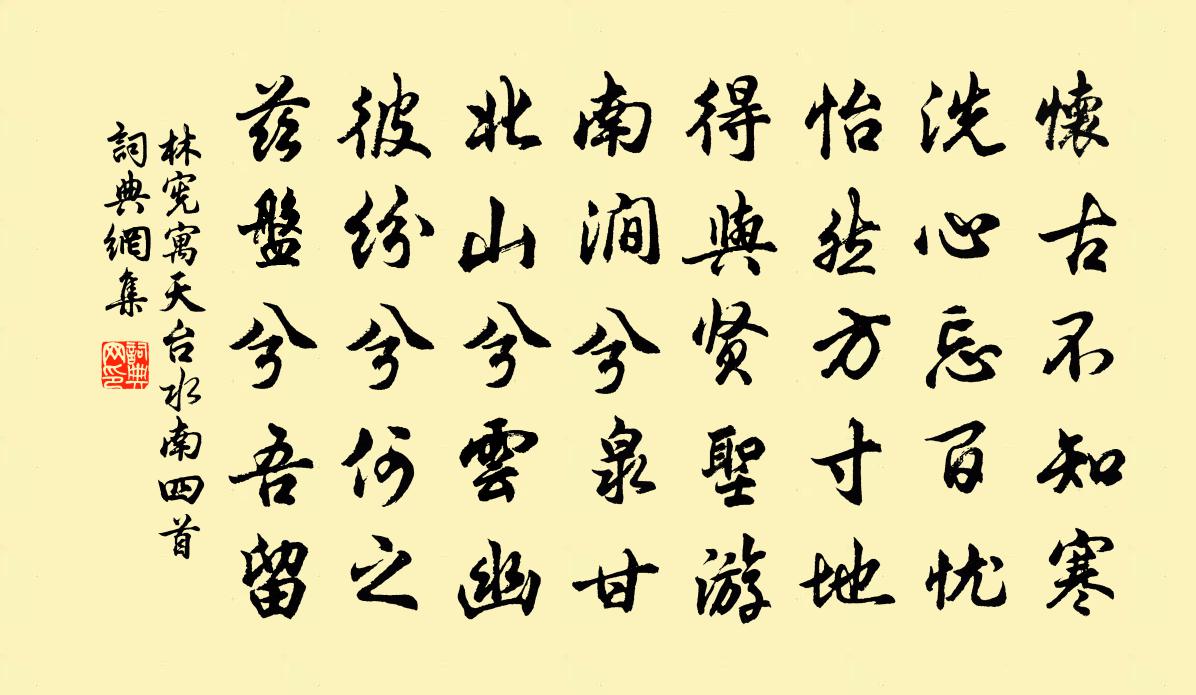 懷古不知寒
洗心忘百忧
怡然方寸地
得與贤聖游
南澗兮泉甘
北山兮雲幽
彼紛兮何之
兹盤兮吾留
林宪寓天台水南四首
詞典網集
詞典網印